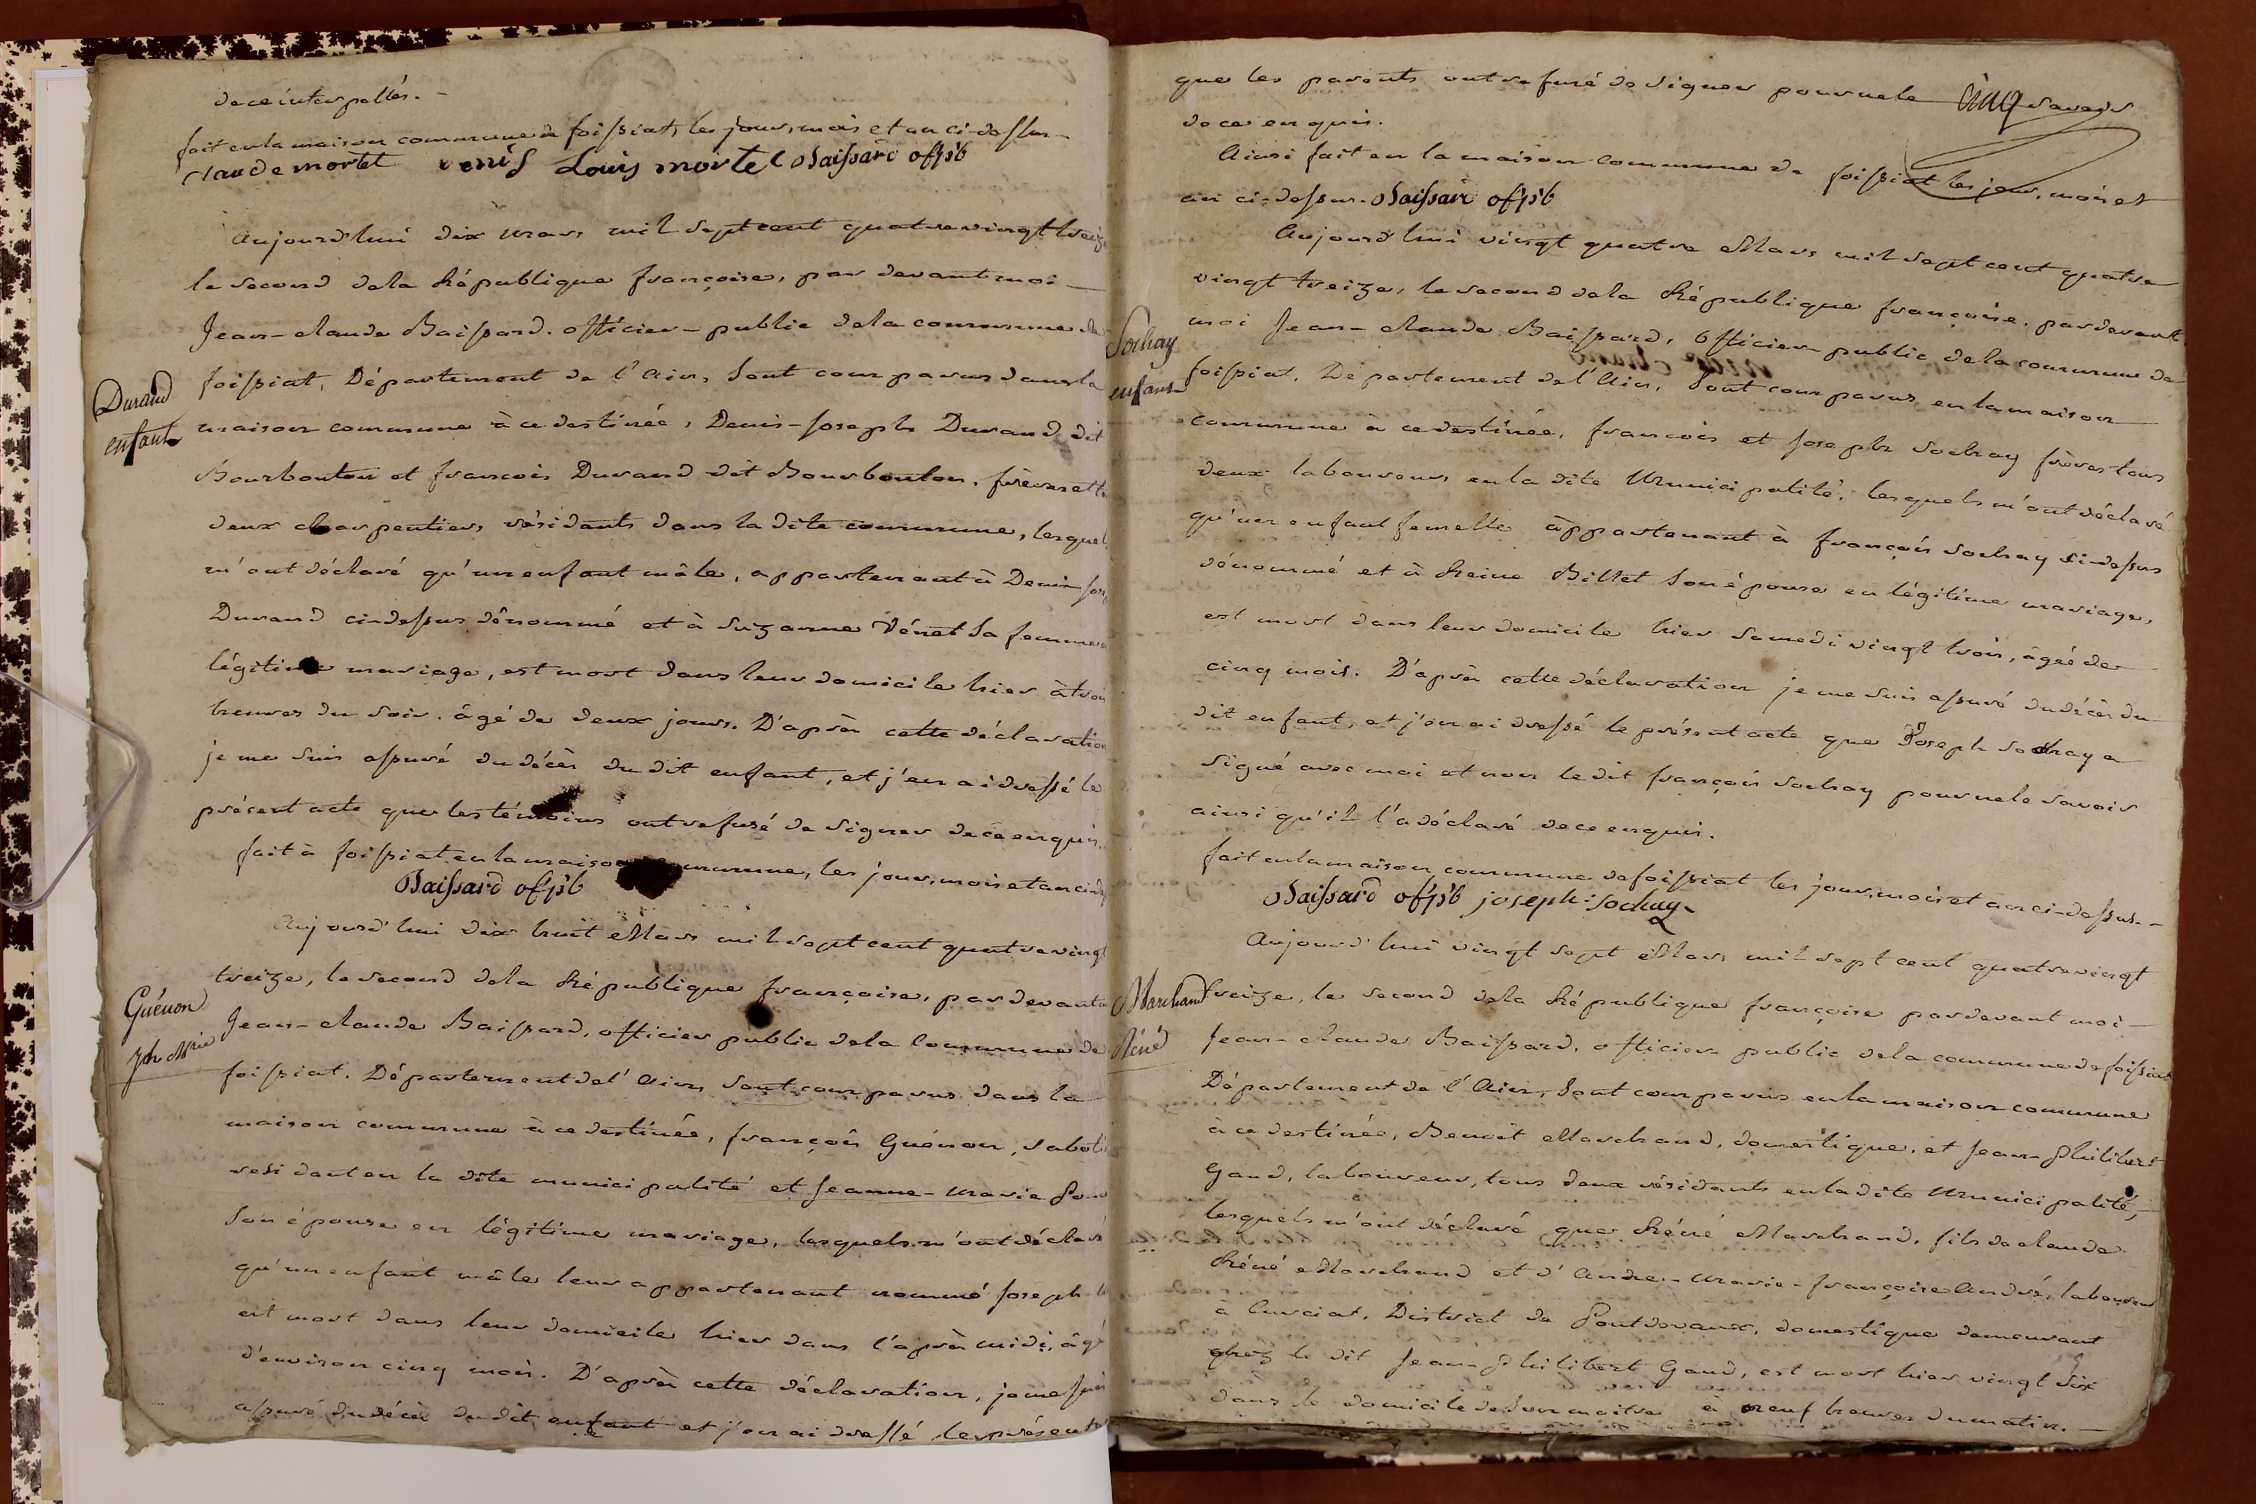 de ce interpellés. -
fait en la maison commune de foissiat, les jour, mois et an ci-dessus -
claude mortel venis Louis mortel Baissard offpb
Aujourd'hui dix Mars mil sept cent quatre vingt treize
le second de la République françoise, par devant moi -
Jean-claude Baissard. officier-public de la commune de
Durand
enfant
foissiat, Département de l'Ain, Sont comparus dans la
maison commune à ce destinée, Denis-Joseph Durand dit
Bourbouton et françois Durand dit Bourbonton, frères et
deux charpentiers, résidants dans la dite commune, lesquels
m'ont déclaré qu'un enfant mâle, appartenant à Denis
Durand ci-dessus dénommé et à Suzanne Vénet Sa femme
légitime mariage, est mort dans leur domicile hier à trois
heures du Soir, âgé de deux jours. D'après cette déclaration
je me Suis assuré du décès du dit enfant, et j'en ai dressé le
présent acte que les témoins ont refusé de Signer de ce enquis.
fait à foissiat en la maison commune, les jour, mois et an
Baissard offpb
Aujourd'hui dix huit Mars mil sept cent quatre vingt
treize, le second de la République françoise, par devant
Guénon
Jph Mrie
Jean-claude Baissard, officier public de la Commune de
foissiat. Département de l'Ain, Sont comparus dans la
maison commune à ce destinée, françois Guénon, sabotier
résidant en la dite municipalité et Jeanne-Marie
Son épouse en légitime mariage, lesquels m'ont déclaré
qu'un enfant mâle leur appartenant nommé Joseph
est mort dans leur domicile hier dans l'après midi, âgé
d'environ cinq mois. D'après cette déclaration, je me suis
assuré du décès du dit enfant et j'en ai dressé le présent
que les parents ont refusé de signer pour ne le cinq savoir
de ce enquis.
Ainsi fait en la maison commune de foissiat les jour, mois et
an ci-dessus. Baissard offpb
Aujourd'hui vingt quatre Mars mil sept cent quatre
vingt treize, le second de la République françoise, par devant
Sochay
enfant
moi Jean-claude Baissard, Officier public de la commune de
foissiat, Département de l'Ain, Sont comparus en la maison
commune à ce destinée, françois et Joseph Sochay frères tous
deux laboureurs en la dite Municipalité, lesquels m'ont déclaré
qu'un enfant femelle appartenant à françois Sochay ci-dessus
dénommé et à Reine Billet Son épouse en légitime mariage,
est mort dans leur domicile hier Samedi vingt trois, âgée de
cinq mois. D'après cette déclaration je me suis assuré du décès du
dit enfant, et j'en ai dressé le présent acte que Joseph Sochay a
signé avec moi et non le dit françois Sochay pour ne le savoir
ainsi qu'il l'a déclaré de ce enquis.
fait en la maison commune de foissiat les jour, mois et an ci-dessus. -
Baissard offpb joseph Sochay
Aujourd'hui vingt sept Mars mil sept cent quatre vingt
Marchand
Réné
treize, le second de la République françoise par devant moi -
Jean-claude Baissard, officier public de la commune de foissiat
Département de l'Ain, Sont comparus en la maison commune
à ce destinée, Benoit Marchand, domestique, et Jean-Philibert
Gaud, laboureur, tous deux résidants en la dite Municipalité,
lesquels m'ont déclaré que Réné Marchand, fils de claude
Réné Marchand et d'Andrée-Marie-françoise André, laboureur
à Curciat, District de Pontdevaux, domestique demeurant
chez le dit Jean-Philibert Gaud, est mort hier vingt Six
dans le domicile de Son maitre à neuf heures du matin. -